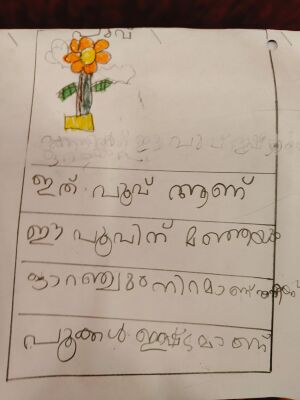 പൂവ്
ഇത് പൂവ് ആണ്
ഈ പൂവിന് മഞ്ഞയും
ഓറഞ്ചും നിറമാണ്
പൂക്കൾ ഇഷ്ടമാണ്